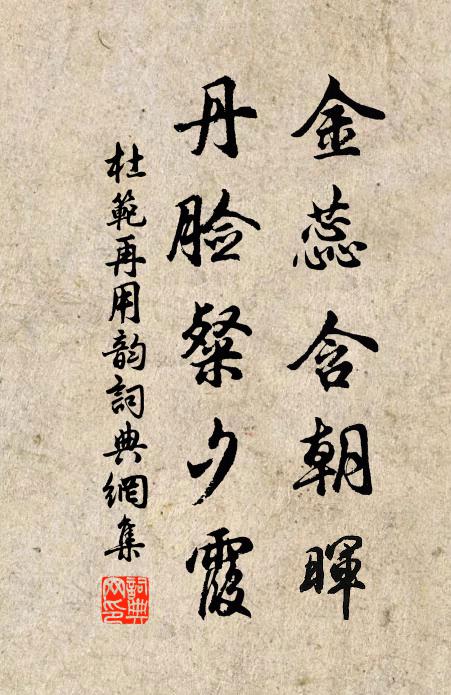 金蕊含朝暉
丹臉粲夕霞
杜範再用韵詞典網集
詞典网印